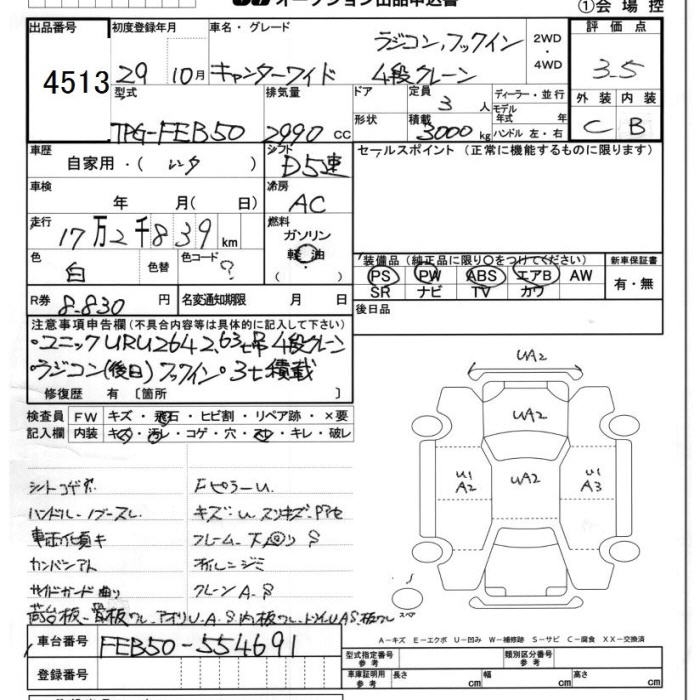 オークション出品申込書
①会場控
出品番号
4513
初度登録年月
29 10月
車名・グレード
ラジコン,フックイン
キャンターワイド 4段クレーン
2WD
・
4WD
評価点
3.5
外装 内装
C B
型式
TPG-FEB50
排気量
2990 CC
ドア
形状
定員
3 人
積載
3000 kg
ディーラー・並行
モデル
年式 年
ハンドル 左・右
車歴
自家用・( レンタ )
シフト
D5速
セールスポイント (正常に機能するものに限ります)
車検
年 月( 日)
冷房
AC
走行
17万2千839 km
燃料
ガソリン
軽油
( )
色
白
色替
色コード
?
装備品 (純正品に限り○をつけてください)
PS PW ABS エアB AW
SR ナビ TV カワ
新車保証書
有・無
R券
8.830 円
名変通知期限
月 日
後日品
注意事項申告欄(不具合内容等は具体的に記入して下さい)
・ユニックURU264 2.63t吊4段クレーン
・ラジコン(後日)フックイン・3t積載
修復歴 有 〔箇所 〕
検査員 FW キズ・飛石・ヒビ割・リペア跡・×要
記入欄 内装 キズ・汚レ・コゲ・穴・スレ・キレ・破レ
シートコゲ穴
FピラーU
ハンドル・ノブスレ
車両化粧キ
カンバンアト
サイドガード曲り
クレーンA.S
UA2
UA2
U1
A2
UA2
U1
A3
スペア
A-キズ E-エクボ U-凹み W-補修跡 S-サビ C-腐食 XX-交換済
車台番号
FEB50-554691
登録番号
型式指定番号
参考
類別区分番号
参考
車庫証明用
参考
長さ cm
幅 cm
高さ cm